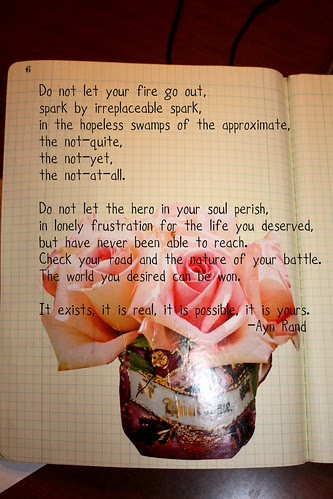 6
Do not let your fire go out,
spark by irreplaceable spark,
in the hopeless swamps of the approximate,
the not-quite,
the not-yet,
the not-at-all.
Do not let the hero in your soul perish,
in lonely frustration for the life you deserved,
but have never been able to reach.
Check your road and the nature of your battle.
The world you desired can be won.
It exists, it is real, it is possible, it is yours.
-Ayn Rand